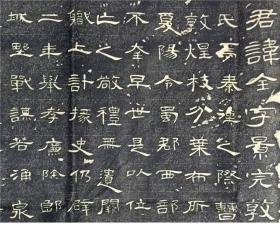 君諱全字景完敦
氏焉秦漢之際曹
敦煌枝分葉布所
夏陽令蜀郡西部
不幸早世是以位
亡之敬禮無遺闕
職上計掾史仍辟
二年舉孝廉除郎
城野戰謀若涌泉